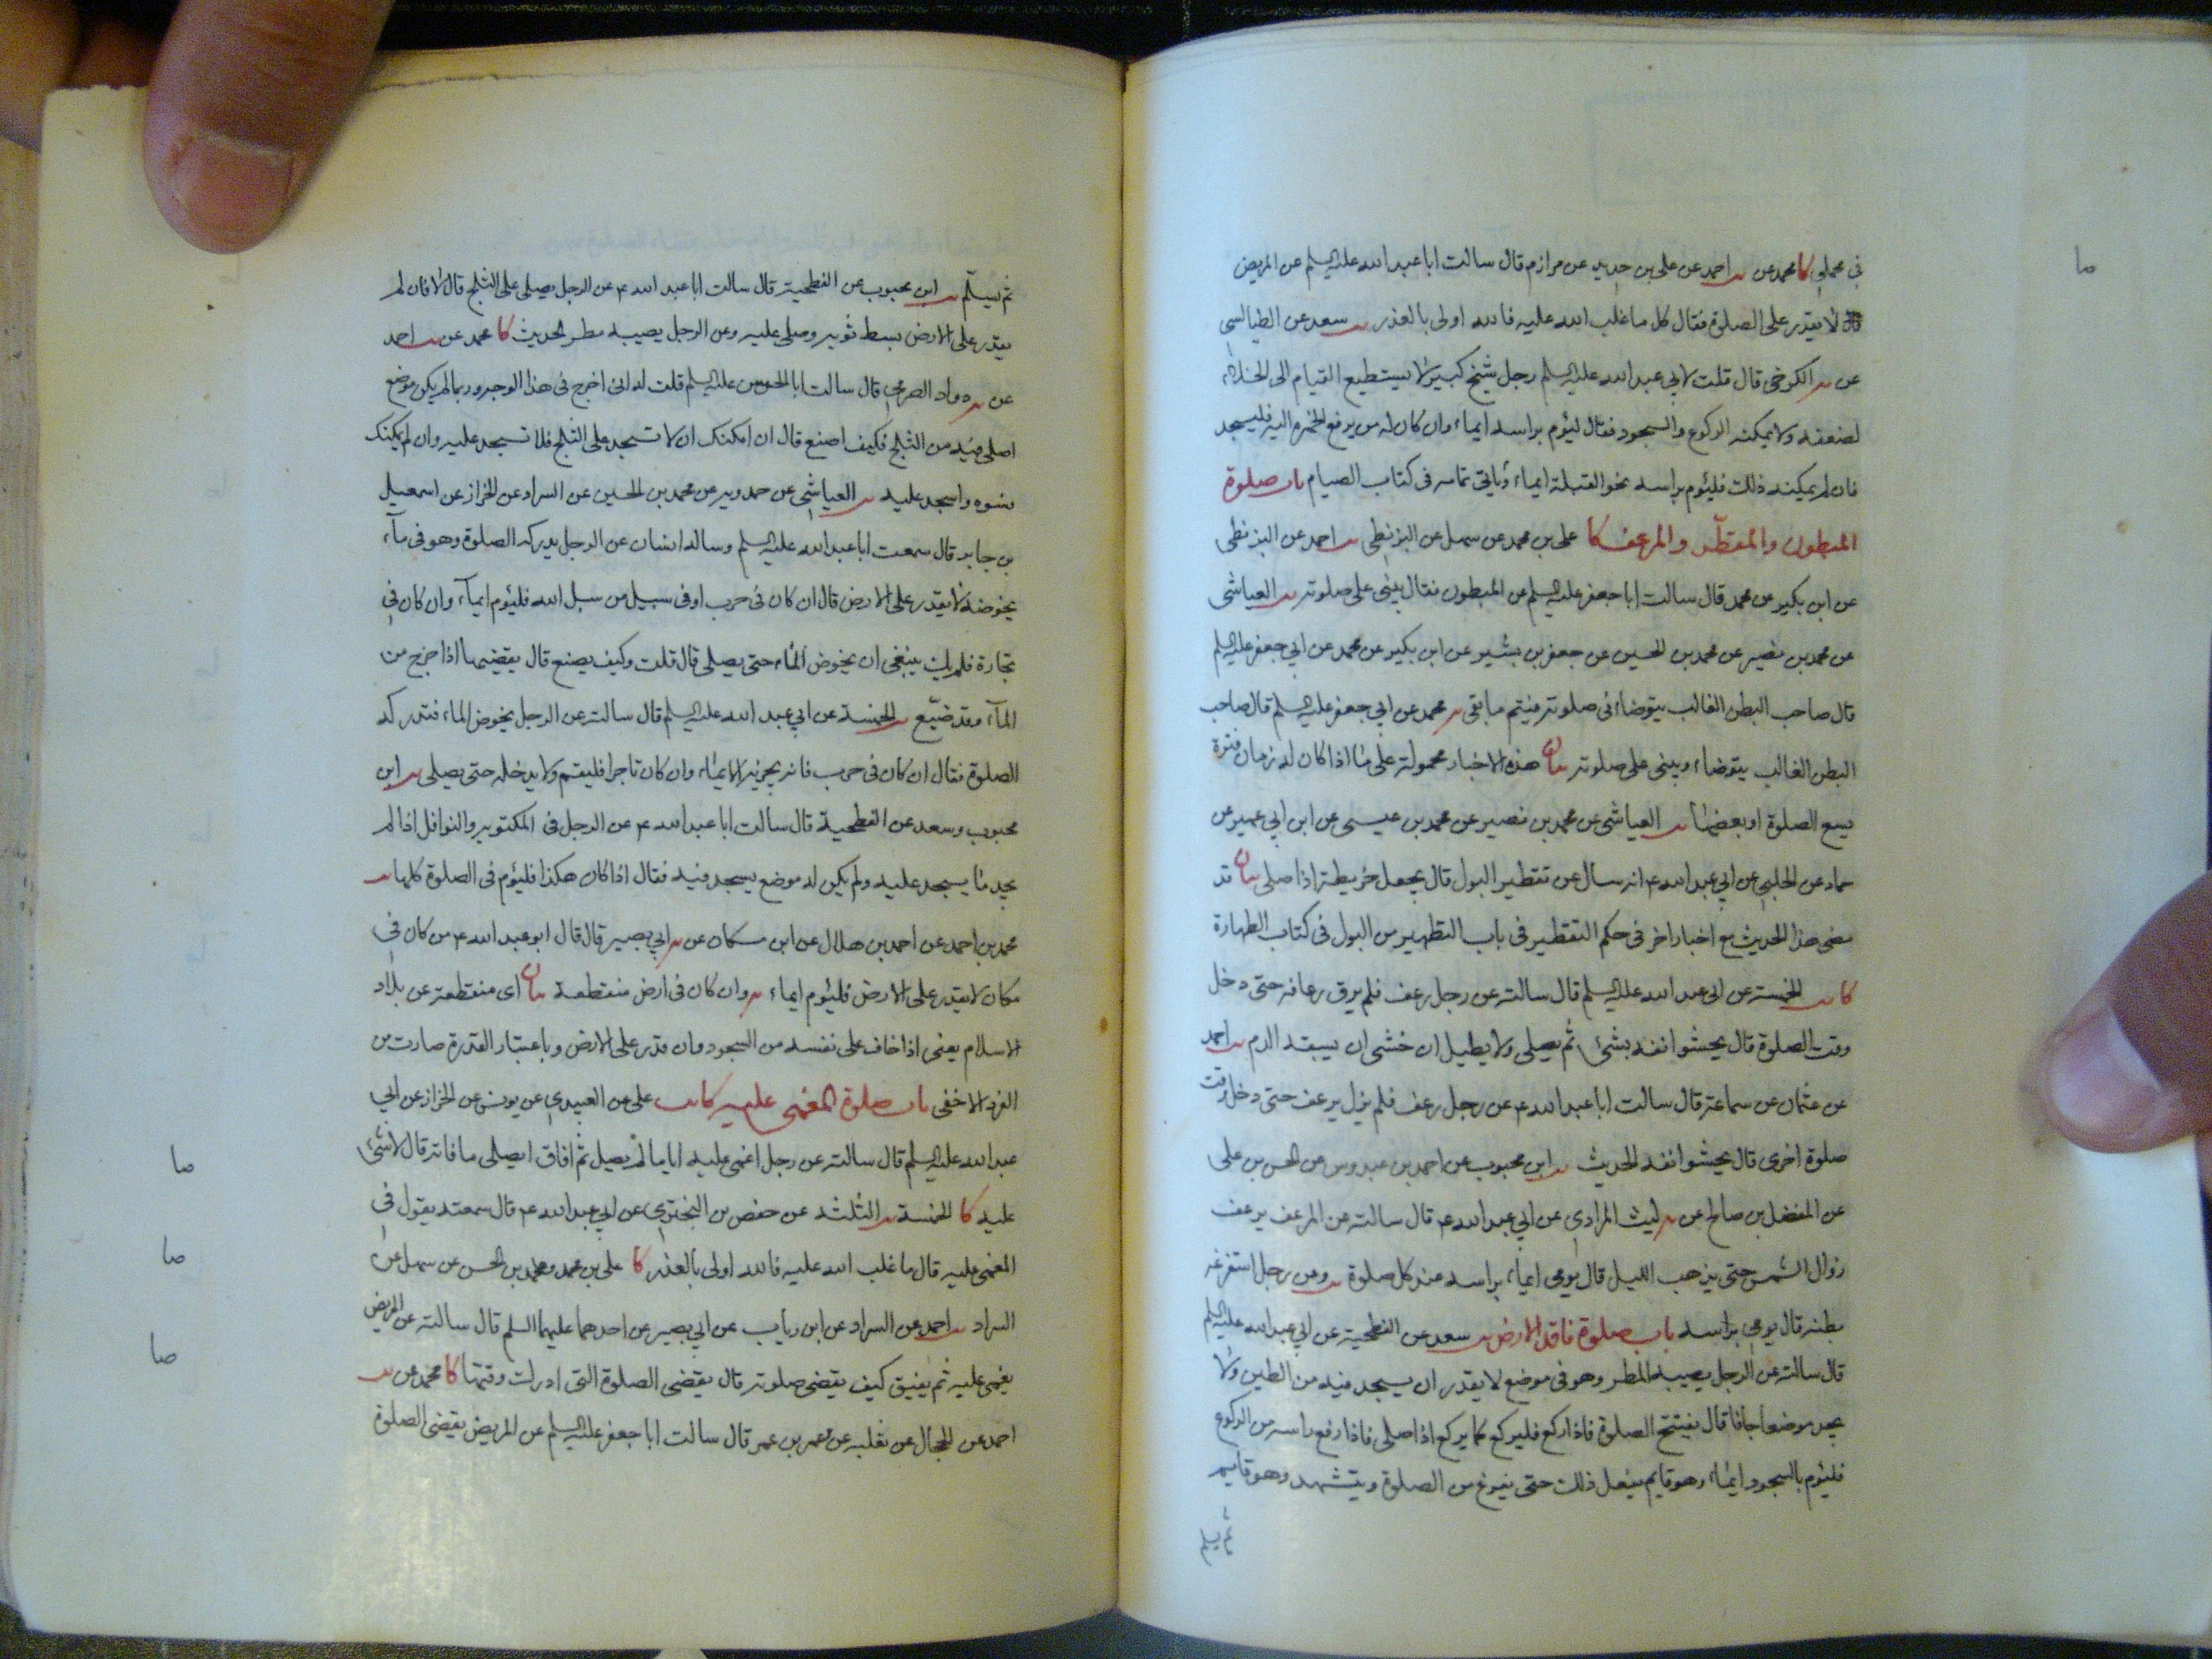 في محملي كا محمد عن احمد عن علي بن حديد عن مرازم قال سالت ابا عبد الله عليه السلم عن المريض
لا يقدر على الصلوة فقال كل ما غلب الله عليه فالله اولى بالعذر يب سعد عن الطيالسي
عن الكوخي قال قلت لابي عبد الله عليه السلم رجل شيخ كبير لا يستطيع القيام الى الخلاء
لضعفه ولا يمكنه الركوع والسجود فقال ليؤم براسه ايماء وان كان له من يرفع الخمرة اليه فليسجد
فان لم يمكنه ذلك فليؤم براسه نحو القبلة ايماء وياتي تمامه في كتاب الصيام باب صلوة
المبطون والمقطر والمرعف كا علي بن محمد عن سهل عن البزنطي يب احمد عن البزنطي
عن ابن بكير عن محمد قال سالت ابا جعفر عليه السلم عن المبطون فقال يبني على صلوته يب العياشي
عن محمد بن نصير عن محمد بن الحسين عن جعفر بن بشير عن ابن بكير عن محمد عن ابي جعفر عليه السلم
قال صاحب البطن الغالب يتوضاء في صلوته فيتم ما بقي محمد عن ابي جعفر عليه السلم قال صاحب
البطن الغالب يتوضاء ويبني على صلوته بيان هذه الاخبار محمولة على ما اذا كان له زمان فترة
يسع الصلوة او بعضها يب العياشي عن محمد بن نصير عن محمد بن عيسى عن ابن ابي عمير عن
حماد عن الحلبي عن ابي عبد الله ع انه سال عن تقطير البول قال يجعل خريطة اذا صلى بيان قد
مضى هذا الحديث مع اخبار اخر في حكم التقطير في باب التطهير من البول في كتاب الطهارة
كا يب الخمسة عن ابي عبد الله عليه السلم قال سالته عن رجل رعف فلم يرق رعافه حتى دخل
وقت الصلوة قال يحشوا انفه بشئ ثم يصلي ولا يطيل ان خشى ان يسبقه الدم يب احمد
عن عثمان عن سماعة قال سالت ابا عبد الله ع عن رجل رعف فلم يزل يرعف حتى دخل وقت
صلوة اخرى قال يحشوا انفه الحديث يب ابن محبوب عن احمد بن عبدوس عن الحسن بن علي
عن المفضل بن صالح عن ليث المرادي عن ابي عبد الله ع قال سالته عن المرعف يرعف
زوال الشمس حتى يذهب الليل قال يومي ايماء براسه عند كل صلوة وعن رجل استفرغه
بطنه قال يومي براسه باب صلوة فاقد الارض يب سعد عن الفطحية عن ابي عبد الله عليه السلم
قال سالته عن الرجل يصيبه المطر وهو في موضع لا يقدر ان يسجد فيه من الطين ولا
يجد موضعا جافا قال يفتتح الصلوة فاذا ركع فليركع كما يركع اذا صلى فاذا رفع راسه من الركوع
فليؤم بالسجود ايماء وهو قايم يفعل ذلك حتى يفرغ من الصلوة ويتشهد وهو قايم
ثم يسلم
صا
ثم يسلم يب ابن محبوب عن الفطحية قال سالت ابا عبد الله ع عن الرجل يصلي على الثلج قال لا فان لم
يقدر على الارض بسط ثوبه وصلى عليه وعن الرجل يصيبه مطر الحديث كا محمد عن يب احمد
عن داود الصرمي قال سالت ابا الحسن عليه السلم قلت له اني اخرج في هذا الوجه وربما لم يكن موضع
اصلي فيه من الثلج فكيف اصنع قال ان امكنك ان لا تسجد على الثلج فلا تسجد عليه وان لم يمكنك
فسوه واسجد عليه يب العياشي عن حمدويه عن محمد بن الحسين عن السراد عن الخراز عن اسمعيل
بن جابر قال سمعت ابا عبد الله عليه السلم وساله انسان عن الرجل يدركه الصلوة وهو في مآء
يخوضه لا يقدر على الارض قال ان كان في حرب او في سبيل من سبل الله فليؤم ايمآء وان كان في
تجارة فلم يك ينبغي ان يخوض المآء حتى يصلي قال قلت وكيف يصنع قال يقضيها اذا خرج من
المآء وقد ضيّع يب الخمسة عن ابي عبد الله عليه السلم قال سالته عن الرجل يخوض الماء فتدركه
الصلوة فقال ان كان في حرب فانه يجزيه الايماء وان كان تاجرا فليقم ولا يدخله حتى يصلي يب ابن
محبوب وسعد عن الفطحية قال سالت ابا عبد الله ع عن الرجل في المكتوبه والنوافل اذا لم
يجد ما يسجد عليه ولم يكن له موضع يسجد فيه فقال اذا كان هكذا فليؤم في الصلوة كلها يب
محمد بن احمد عن احمد بن هلال عن ابن مسكان عن ابي بصير قال قال ابو عبد الله ع من كان في
مكان لا يقدر على الارض فليؤم ايماء وان كان في ارض منقطعة بيان اي منقطعة عن بلاد
الاسلام يعني اذا خاف على نفسه من السجود وان قدر على الارض وباعتبار القدرة صارت من
الفرد الاخفى باب صلوة المغمى عليه كا يب علي عن العبيدي عن يونس عن الخراز عن ابي
عبد الله عليه السلم قال سالته عن رجل اغمي عليه اياما لم يصل ثم افاق ايصلي ما فاته قال لا شئ
عليه كا الخمسة يب الثلثة عن حفص بن البختري عن ابي عبد الله ع قال سمعته يقول في
المغمى عليه قال ما غلب الله عليه فالله اولى بالعذر كا علي بن محمد ومحمد بن الحسن عن سهل عن
السراد يب احمد عن السراد عن ابن رياب عن ابي بصير عن احدهما عليهما السلم قال سالته عن المريض
يغمى عليه ثم يفيق كيف يقضي صلوته قال يقضي الصلوة التي ادرك وقتها كا محمد عن يب
احمد عن الحجال عن ثعلبه عن معمر بن عمر قال سالت ابا جعفر عليه السلم عن المريض يقضي الصلوة
صا
صا
صا